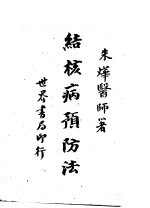 朱燁醫師著
結核病預防法
世界書局印行